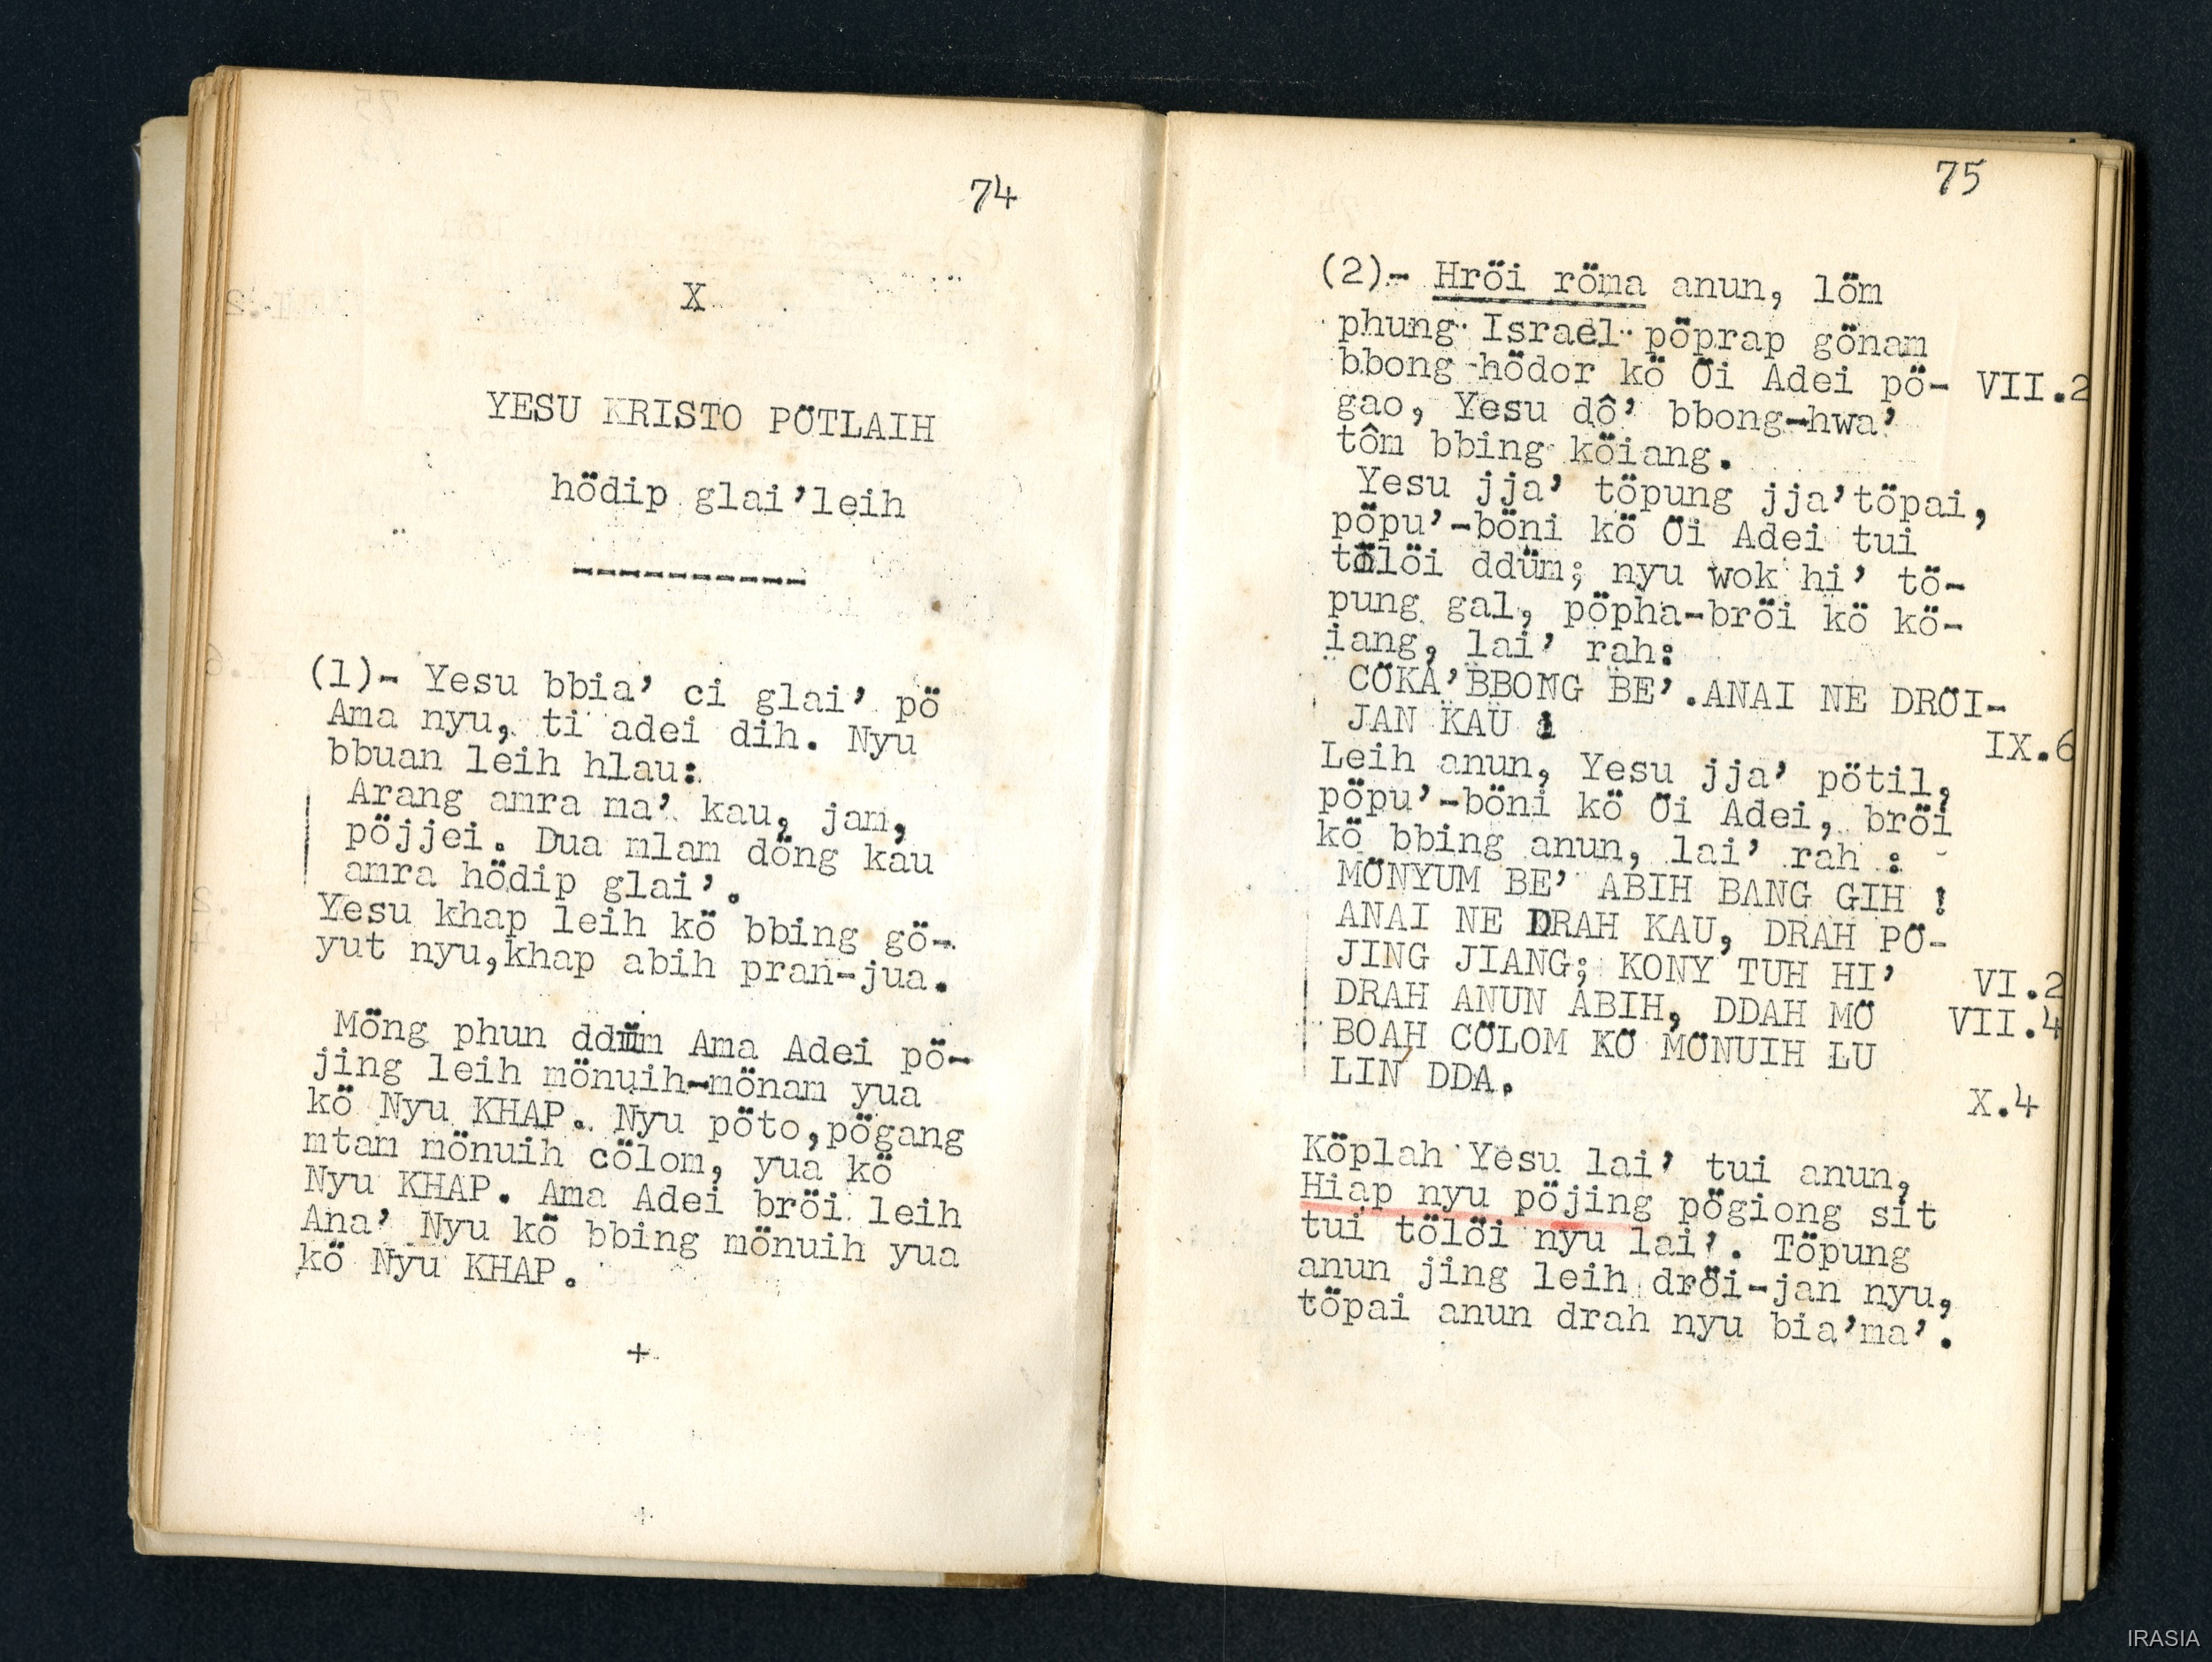 74
X
YESU KRISTO PÖTLAIH
hödip glai’leih
-----------
(1)- Yesu bbia’ ci glai’ pö
Ama nyu, ti adei dih. Nyu
bbuan leih hlau:
Arang amra ma’ kau, jan,
pöjjei. Dua mlam döng kau
amra hödip glai’.
Yesu khap leih kö bbing gö-
yut nyu,khap abih pran-jua.
Möng phun ddüm Ama Adei pö-
jing leih mönuih-mönam yua
kö Nyu KHAP. Nyu pöto,pögang
mtam mönuih cölom, yua kö
Nyu KHAP. Ama Adei bröi leih
Ana’ Nyu kö bbing mönuih yua
kö Nyu KHAP.
+
75
(2)- Hröi röma anun, löm
phung Israel pöprap gönam
bbong hödor kö Öi Adei pö- VII.2
gao, Yesu dô’ bbong-hwa’
tôm bbing köiang.
Yesu jja’ töpung jja’töpai,
pöpu’-böni kö Öi Adei tui
tölöi ddüm; nyu wok hi’ tö-
pung gal, pöpha-bröi kö kö-
iang, lai’ rah:
CÖKA’BBONG BE’.ANAI NE DRÖI-
JAN KAU !
IX.6
Leih anun, Yesu jja’ pötil,
pöpu’-böni kö Öi Adei, bröi
kö bbing anun, lai’ rah :
MÖNYUM BE’ ABIH BANG GIH !
ANAI NE DRAH KAU, DRAH PÖ-
JING JIANG; KONY TUH HI’ VI.2
DRAH ANUN ABIH, DDAH MÖ VII.4
BOAH CÖLOM KÖ MÖNUIH LU
LIN DDA.
X.4
Köplah Yesu lai’ tui anun,
Hiap nyu pöjing pögiong sit
tui tölöi nyu lai’. Töpung
anun jing leih dröi-jan nyu,
töpai anun drah nyu bia’ma’.
IRASIA